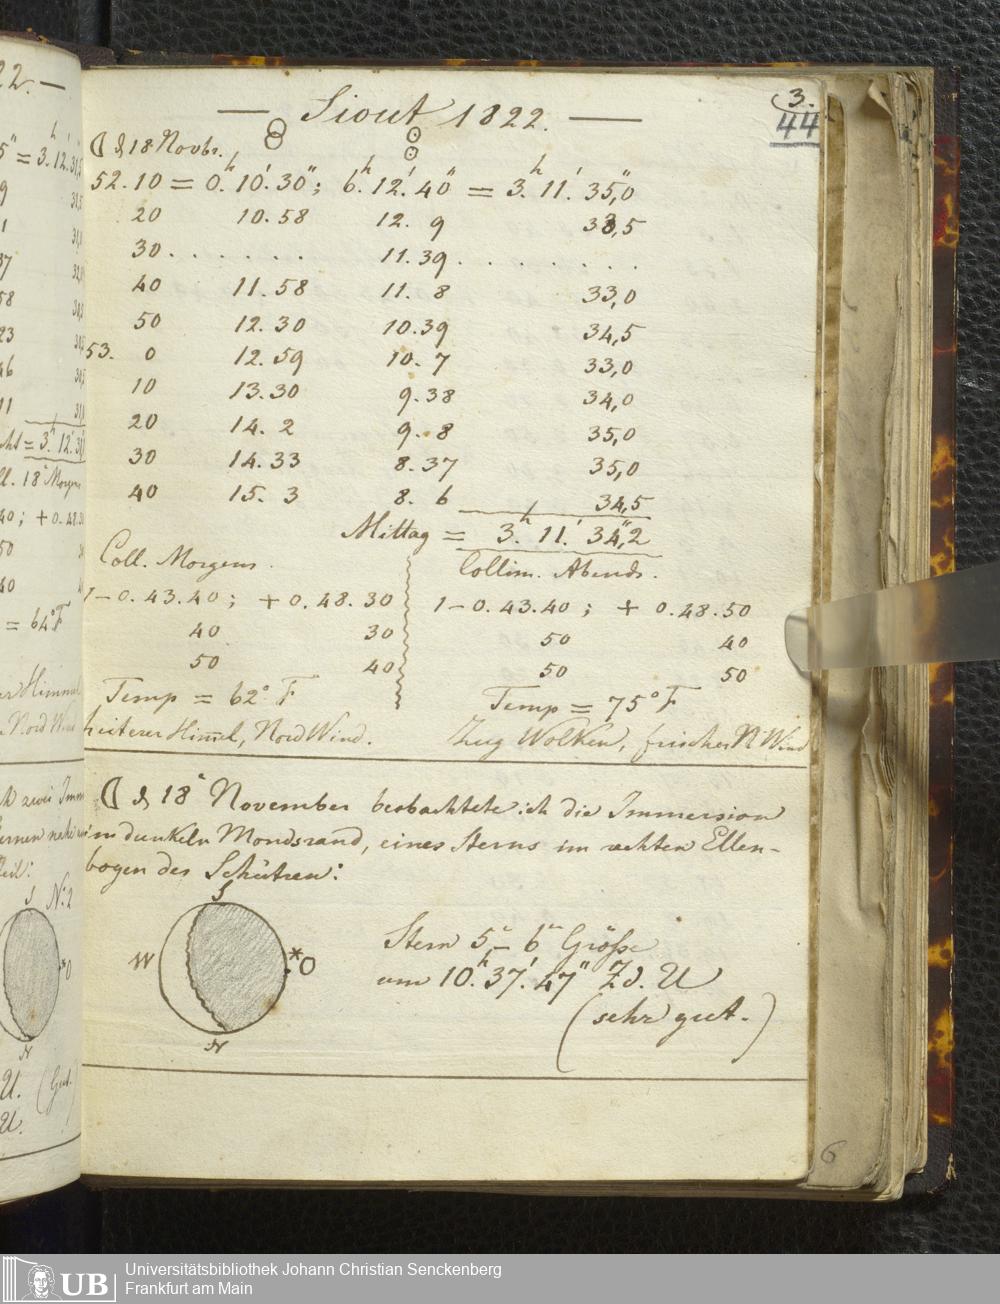 — Siout 1822. —
3.
44
☽ d 18 Novbr.
52.10 = 0.h 10.' 30"; 6.h 12.' 40" = 3.h 11.' 35,"0
20 10.58 12. 9 33,5
30 . . . . . . . 11.39 . . . . . . . .
40 11.58 11. 8 33,0
50 12.30 10.39 34,5
53. 0 12.59 10. 7 33,0
10 13.30 9.38 34,0
20 14. 2 9. 8 35,0
30 14.33 8.37 35,0
40 15. 3 8. 6 34,5
Mittag = 3.h 11.' 34,"2
Coll. Morgens.
1 – 0.43.40; + 0.48.30
40 30
50 40
Temp = 62° F
heiterer Himmel, Nord Wind.
Collim. Abends.
1 – 0.43.40; + 0.48.50
50 40
50 50
Temp = 75° F
Zug Wolken, frischer N Wind
☽ d 18n November beobachtete ich die Immersion
im dunkeln Mondsrand, eines Sterns im rechten Ellen-
bogen des Schützen:
S
W
* O
N
Stern 5n – 6n Größe
um 10.h 37.' 47" Z. d. U
(sehr gut.)
22. —
5" = 3.h 12.' 31,5
9
1
37
58
23
46
11
= 3.h 12.'
ll. 18n Morgens
40; + 0.48.30
50
40
= 64° F
er Himmel
Nord Wind
zwei Imm
ternen nahe
S
N: 2
O
N
U. (Gut.
U.
6
UB
Universitätsbibliothek Johann Christian Senckenberg
Frankfurt am Main